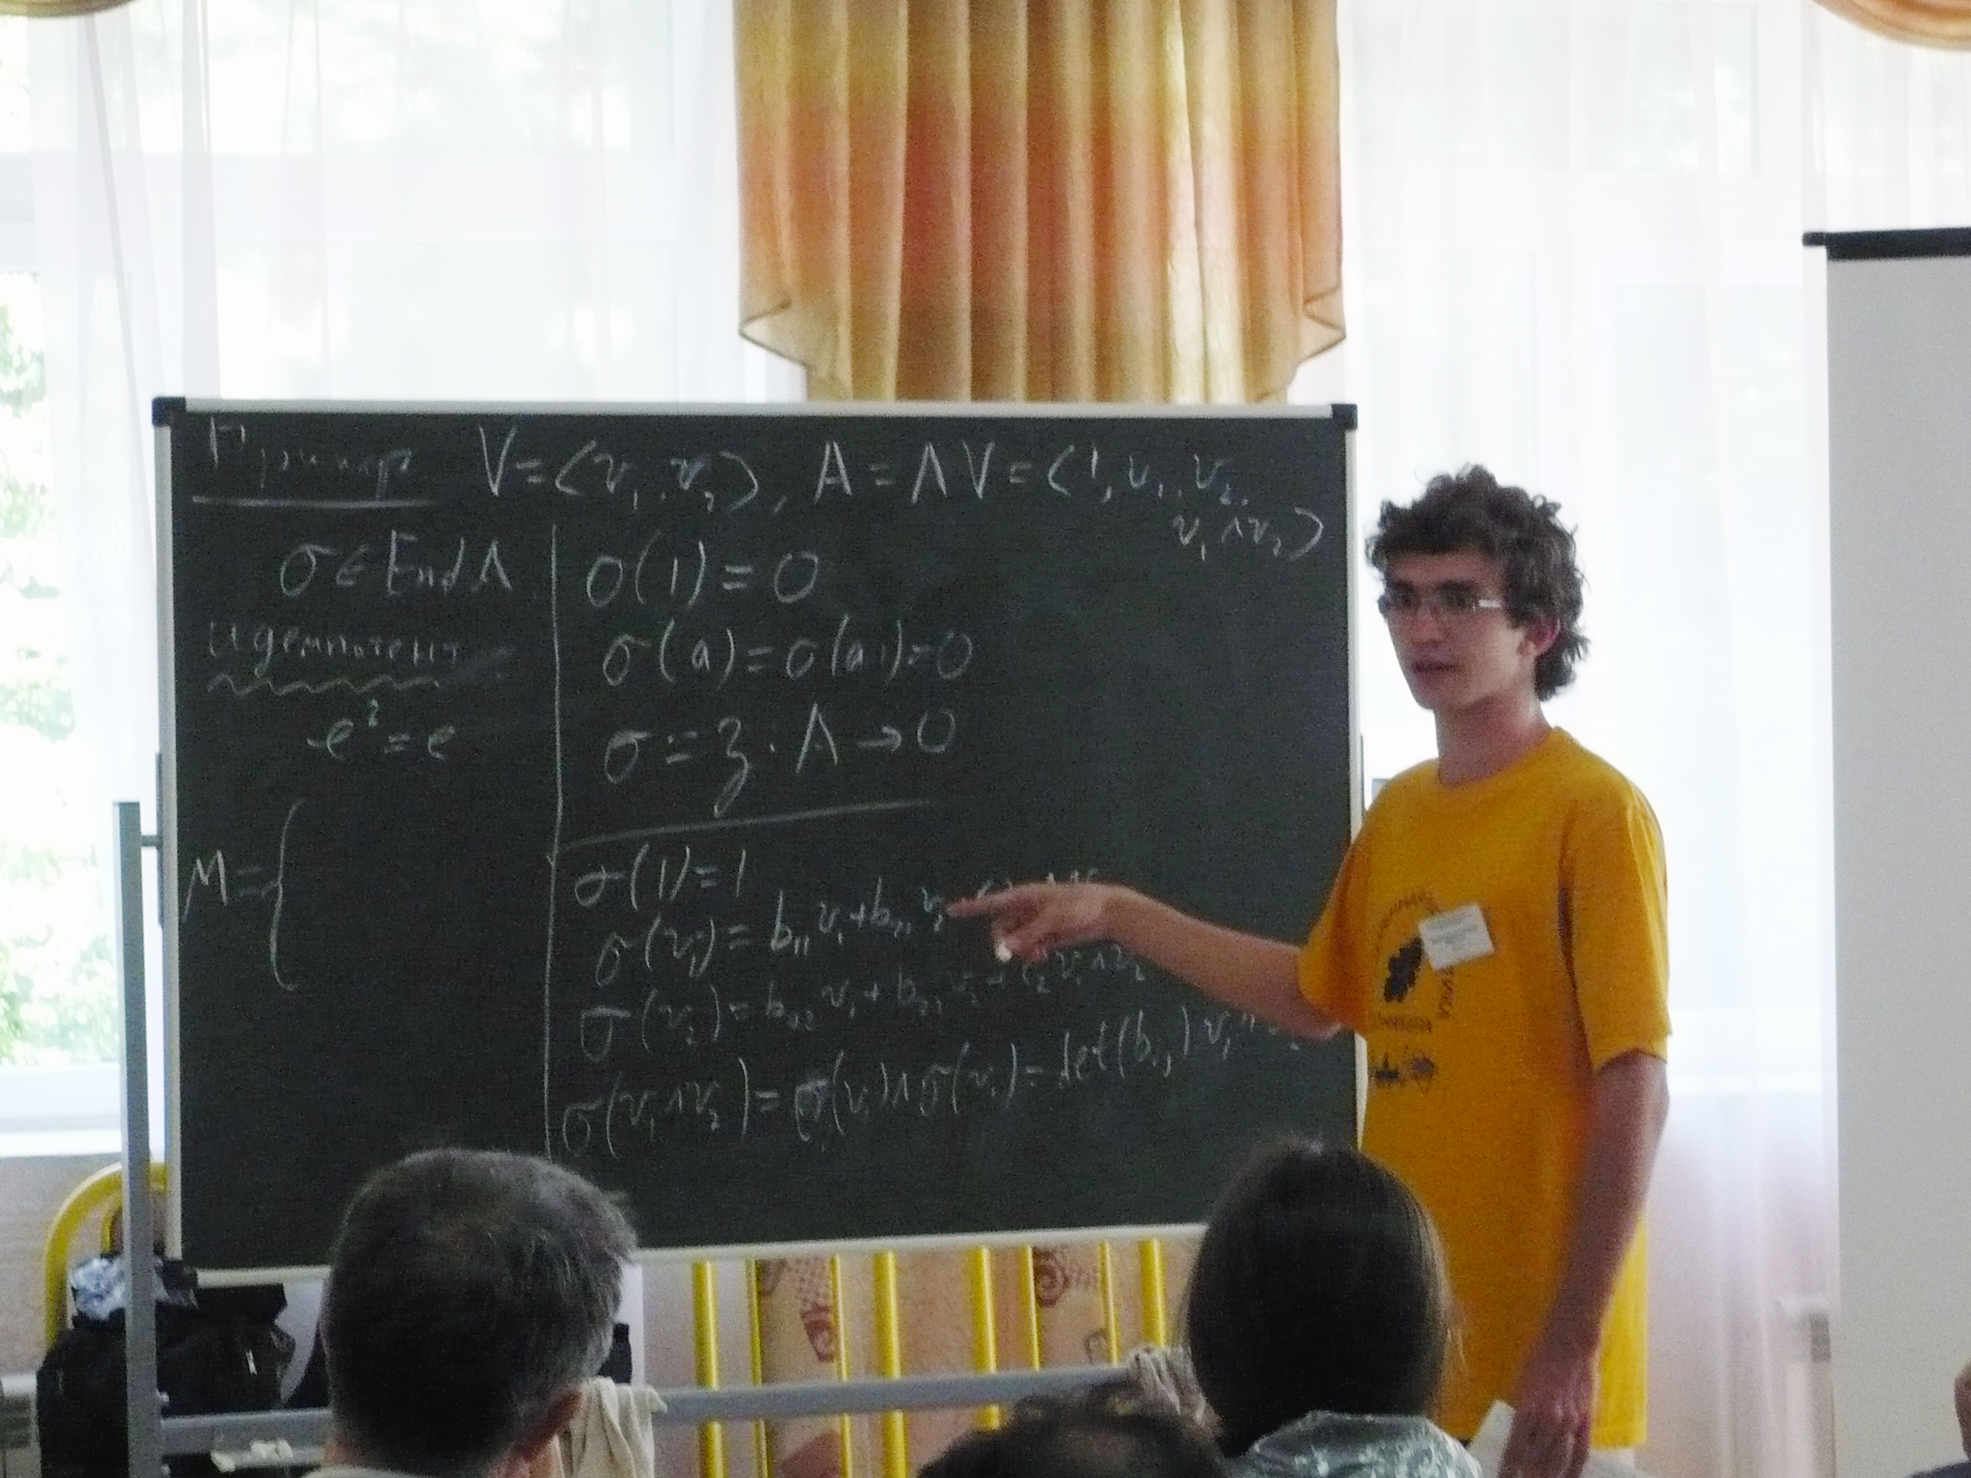 Пример V = ⟨v₁, v₂⟩, A = ΛV = ⟨1, v₁, v₂,
v₁ ∧ v₂⟩
σ ∈ End Λ
идемпотент
e² = e
M = {
σ(1) = 0
σ(a) = σ(a·1) = 0
σ = z · Λ → 0
σ(1) = 1
σ(v₁) = b₁₁ v₁ + b₂₁ v₂
σ(v₂) = b₁₂ v₁ + b₂₂ v₂ + c₂ v₁ ∧ v₂
σ(v₁ ∧ v₂) = σ(v₁) ∧ σ(v₂) = det(bᵢⱼ) v₁ ∧